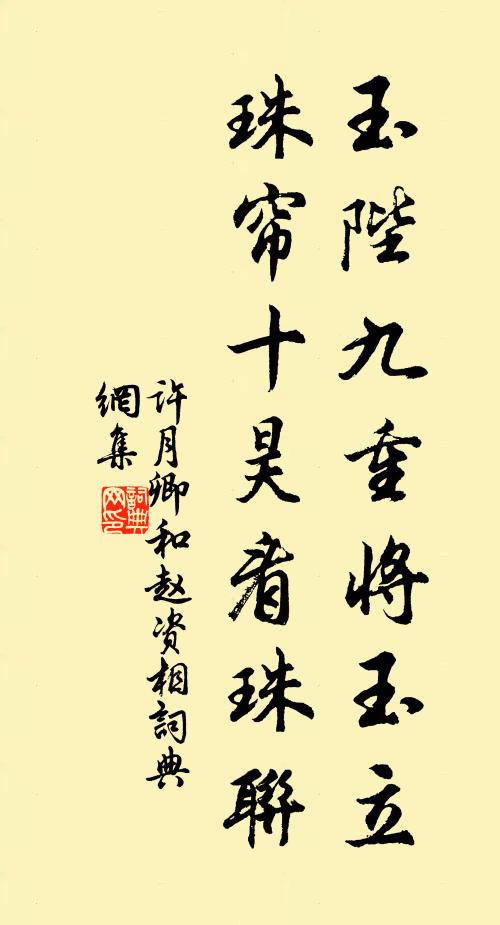 玉陛九重将玉立
珠帘十昊看珠聯
许月卿和赵资相詞典
網集
詞典
网印